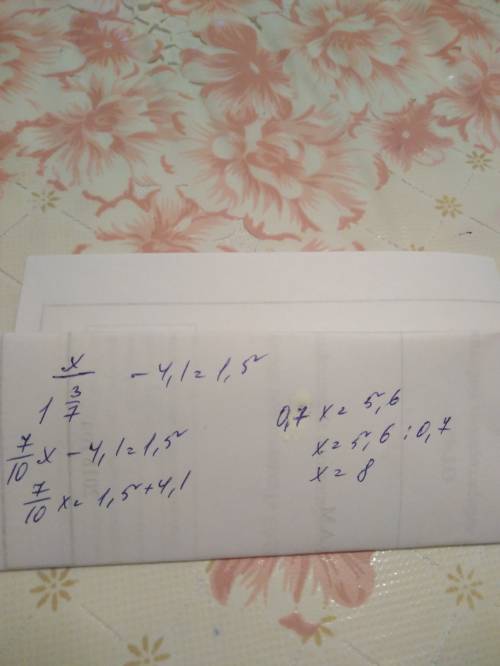 x/(1 3/7) - 4,1 = 1,5
7/10 x - 4,1 = 1,5
7/10 x = 1,5 + 4,1
0,7 x = 5,6
x = 5,6 : 0,7
x = 8